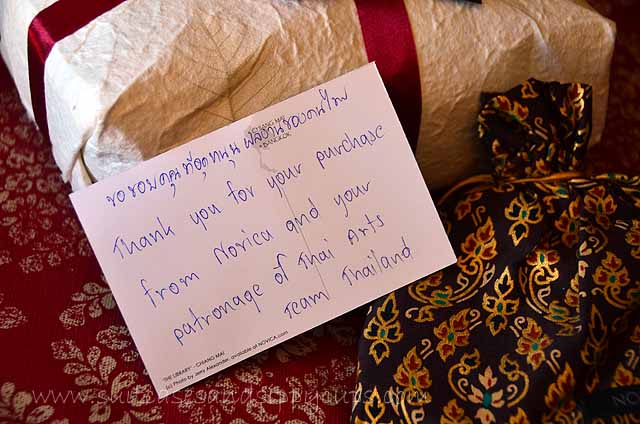 ขอขอบคุณที่อุดหนุน ผลงานของคนไทย
CHIANG MAI
• BANGKOK
Thank you for your purchase
from Novica and your
patronage of Thai Arts
Team Thailand
'THE LIBRARY' - CHIANG MAI
(c) Photo by Jerry Alexander, available at NOVICA.com
www.suitcasesandsippycups.com
NO